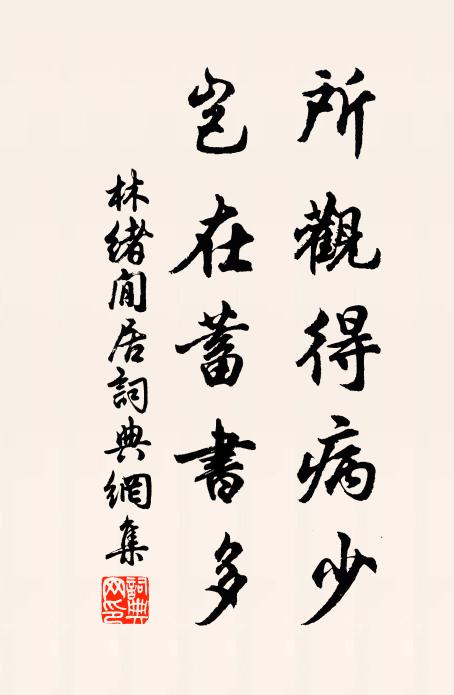 所觀得病少
豈在蓄書多
林緒閒居詞典網集
詞典網印